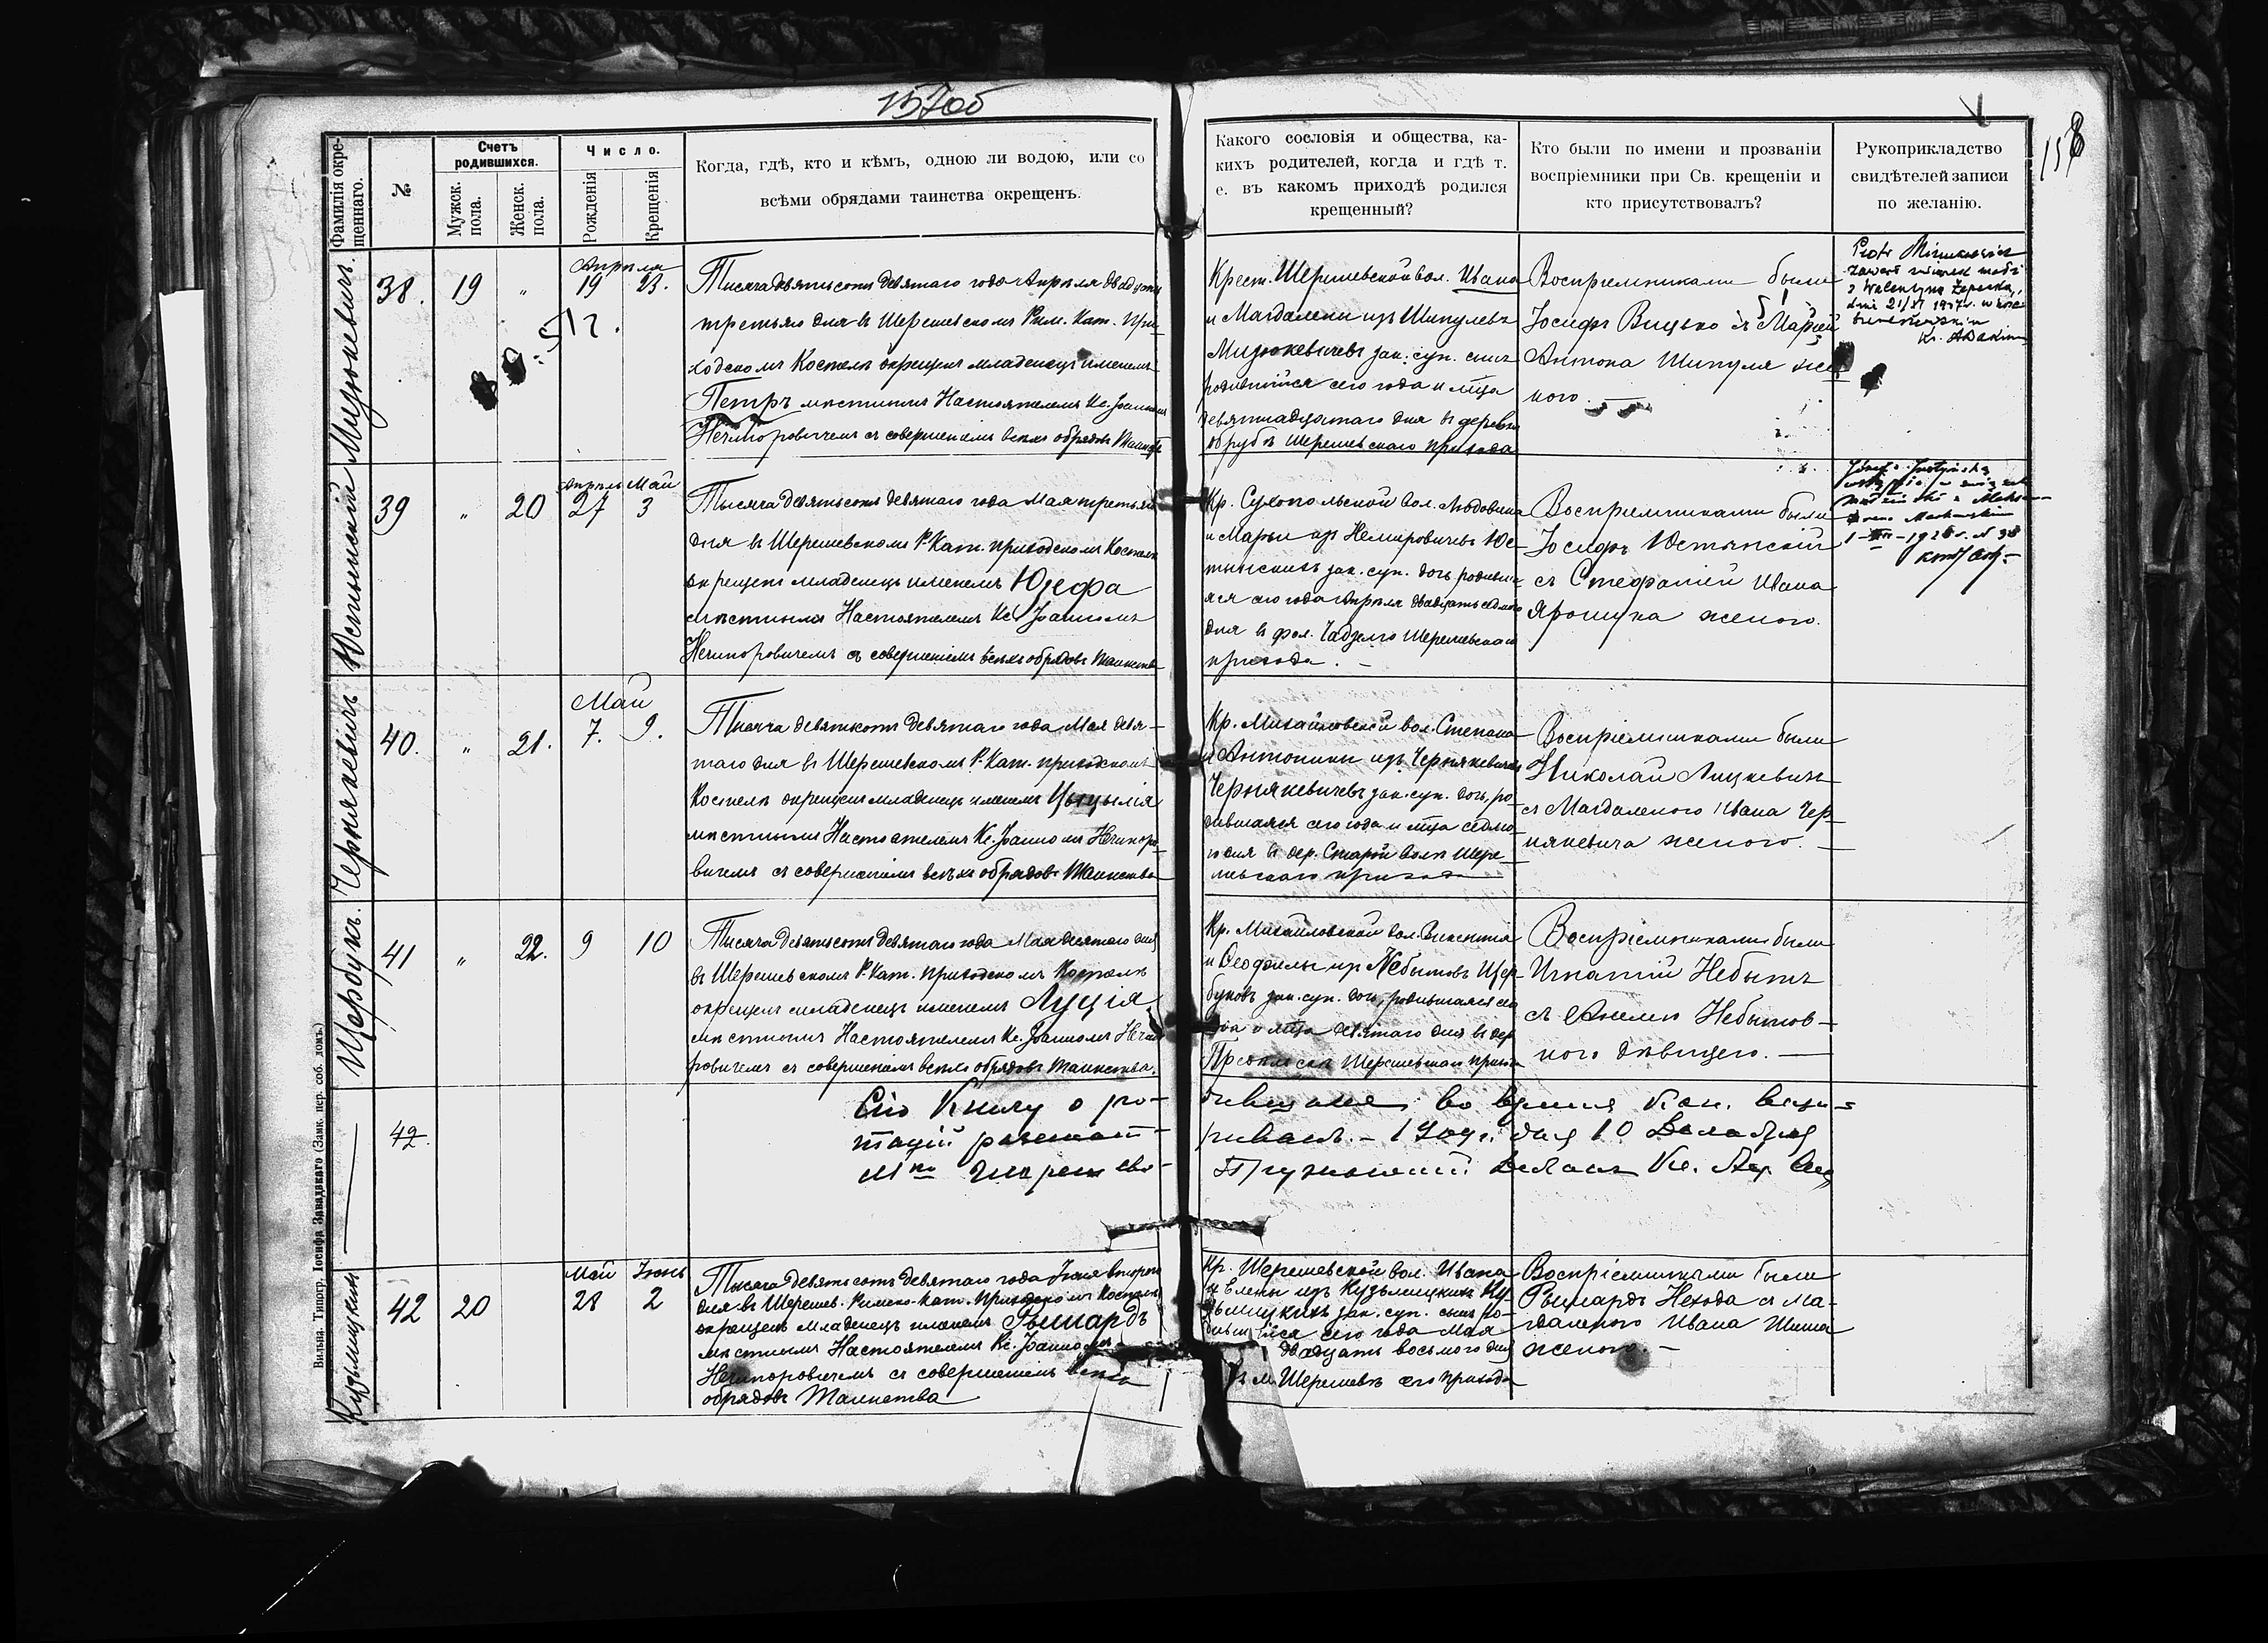 157об
158
Фамилія окрещеннаго.
№
Счетъ родившихся.
Мужск. пола.
Женск. пола.
Число.
Рожденія
Крещенія
Когда, гдѣ, кто и кѣмъ, одною ли водою, или со
всѣми обрядами таинства окрещенъ.
Какого сословія и общества, ка-
кихъ родителей, когда и гдѣ т.
е. въ какомъ приходѣ родился
крещенный?
Кто были по имени и прозванiи
воспріемники при Св. крещеніи и
кто присутствовалъ?
Рукоприкладство
свидѣтелей записи
по желанію.
Мицюкевичъ.
38. 19 "
Апрѣля
19 23.
Тысяча девятьсотъ девятаго года Апрѣля двадцать
третьяго дня въ Шерешевскомъ Рим. Кат. При-
ходскомъ Костелѣ окрещенъ младенецъ именемъ
Петръ мѣстнымъ Настоятелемъ Кс. Іоанномъ
Нечипоровичемъ съ совершеніемъ всѣхъ обрядовъ Таинства
Крест. Шерешевской вол. Ивана
и Магдалены изъ Шипулевъ
Мицюкевичевъ зак. суп. сынъ
родившійся сего года и мѣца
девятнадцатаго дня въ деревни
Обрубѣ Шерешевскаго прихода
Воспріемниками были
Іосифъ Вицько съ Маріей
Антона Шипуля же-
ною. —
Piotr
zawarł
z Walentyną
dnia 21/XI 1937 r. w
Юстынскій
39 " 20
Апрѣль Май
27 3
Тысяча девятьсотъ девятаго года Мая третьяго
дня въ Шерешевскомъ Р. Кат. приходскомъ Костелѣ
окрещенъ младенецъ именемъ Юзефа
мѣстнымъ Настоятелемъ Кс. Іоанномъ
Нечипоровичемъ съ совершеніемъ всѣхъ обрядовъ Таинства
Кр. Сухопольской вол. Людовика
и Марьи изъ Немировичевъ Юс-
тынскихъ зак. суп. дочь, родивша-
яся сего года Апрѣля двадцать седьмого
дня въ фол. Шерешевскаго
прихода. —
Воспріемниками были
Іосифъ Юстынскій
съ Стефаніей Ивана
Ярошука женою.
Józefa Justyńska
1928 r. № 38
Чернякевичъ
40. " 21.
Май
7. 9.
Тысяча девятьсотъ девятаго года Мая девя-
таго дня въ Шерешевскомъ Р. Кат. приходскомъ
Костелѣ окрещенъ младенецъ именемъ Цыцылія
мѣстнымъ Настоятелемъ Кс. Іоанномъ Нечипоро-
вичемъ съ совершеніемъ всѣхъ обрядовъ Таинства
Кр. Михайловской вол. Степана
и Антонины изъ Чернякевичевъ
Чернякевичевъ зак. суп. дочь, ро-
дившаяся сего года и мѣца седьмо-
го дня въ дер. Старой волѣ Шере-
шевскаго прихода
Воспріемниками были
Николай Лицкевичъ
съ Магдаленою Ивана Чер-
някевича женою. —
Щербукъ.
41 " 22. 9 10
Тысяча девятьсотъ девятаго года Мая десятаго дня
въ Шерешевскомъ Р. Кат. приходскомъ Костелѣ
окрещенъ младенецъ именемъ Луція
мѣстнымъ Настоятелемъ Кс. Іоанномъ Нечипо-
ровичемъ съ совершеніемъ всѣхъ обрядовъ таинства.
Кр. Михайловской вол. Викентія
и Ѳеофилы изъ Небытовъ Щер-
буковъ зак. суп. дочь, родившаяся сего
года и мѣца девятаго дня въ дер.
Шерешевскаго прихода
Воспріемниками были
Игнатій Небытъ
съ Анелею Небытов-
ною дѣвицею. —
42.
Сію Книгу о ро-
дившихся во время Кан. визи-
таціи разсмат-
ривалъ. — 1909 г. дня 10
Пружанскій Деканъ Кс.
Кузьмицкій
42 20
Май Іюнь
28 2
Тысяча девятьсотъ девятаго года Іюня второго
дня въ Шерешев. Римско-Кат. Приходскомъ Костелѣ
окрещенъ младенецъ именемъ Рышардъ
мѣстнымъ Настоятелемъ Кс. Іоанномъ
Нечипоровичемъ съ совершеніемъ всѣхъ
обрядовъ Таинства
Кр. Шерешевской вол. Ивана
и Елены изъ Кузьмицкихъ Ку-
зьмицкихъ зак. суп. сынъ ро-
дившійся сего года Мая
двадцать восьмого дня
въ м. Шерешевѣ сего прихода
Воспріемниками были
Рышардъ Нехода съ Ма-
гдаленою Ивана Шиша
женою. —
Вильна. Типогр. Іосифа Завадзкаго (Замк. пер. соб. домъ.)